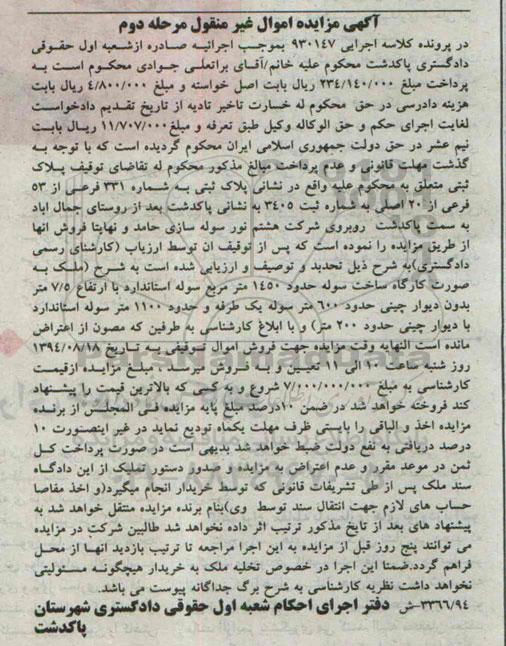 آگهی مزایده اموال غیر منقول مرحله دوم
در پرونده کلاسه اجرایی ۹۳۰۱۴۷ بموجب اجرائیه صادره ازشعبه اول حقوقی
دادگستری پاکدشت محکوم علیه خانم/آقای براتعلی جوادی محکوم است به
پرداخت مبلغ ۲۳۴/۱۴۰/۰۰۰ ریال بابت اصل خواسته و مبلغ ۴/۸۰۰/۰۰۰ ریال بابت
هزینه دادرسی در حق محکوم له خسارت تاخیر تادیه از تاریخ تقدیم دادخواست
لغایت اجرای حکم و حق الوکاله وکیل طبق تعرفه و مبلغ ۱۱/۷۰۷/۰۰۰ ریال بابت
نیم عشر در حق دولت جمهوری اسلامی ایران محکوم گردیده است که با توجه به
گذشت مهلت قانونی و عدم پرداخت مبالغ مذکور محکوم له تقاضای توقیف پلاک
ثبتی متعلق به محکوم علیه واقع در نشانی پلاک ثبتی به شماره ۳۳۱ فرعی از ۵۳
فرعی از ۲۰ اصلی به شماره ثبت ۳۴۰۵ به نشانی پاکدشت بعد از روستای جمال اباد
به سمت پاکدشت روبروی شرکت هشتم نور سوله سازی حامد و نهایتا فروش انها
از طریق مزایده را نموده است که پس از توقیف ان توسط ارزیاب (کارشناس رسمی
دادگستری)به شرح ذیل تحدید و توصیف و ارزیابی شده است به شرح (ملک به
صورت کارگاه ساخت سوله حدود ۱۴۵۰ متر مربع سوله استاندارد با ارتفاع ۷/۵ متر
بدون دیوار چینی حدود ۶۰۰ متر سوله یک طرفه و حدود ۱۱۰۰ متر سوله استاندارد
با دیوار چینی حدود ۲۰۰ متر) و با ابلاغ کارشناسی به طرفین که مصون از اعتراض
مانده است النهایه وقت مزایده جهت فروش اموال توقیفی به تاریخ ۱۳۹۴/۰۸/۱۸
روز شنبه ساعت ۱۰ الی ۱۱ تعیین و به فروش میرسد . مبلغ مزایده ازقیمت
کارشناسی به مبلغ ۷/۰۰۰/۰۰۰/۰۰۰ شروع و به کسی که بالاترین قیمت را پیشنهاد
کند فروخته خواهد شد در ضمن ۱۰درصد مبلغ پایه مزایده فی المجلس از برنده
مزایده اخذ و الباقی را بایستی ظرف مهلت یکماه تودیع نماید در غیر اینصورت ۱۰
درصد دریافتی به نفع دولت ضبط خواهد شد بدیهی است در صورت پرداخت کل
ثمن در موعد مقرر و عدم اعتراض به مزایده و صدور دستور تملیک از این دادگاه
سند ملک پس از طی تشریفات قانونی که توسط خریدار انجام میگیرد(و اخذ مفاصا
حساب های لازم جهت انتقال سند توسط وی)بنام برنده مزایده منتقل خواهد شد به
پیشنهاد های بعد از تایخ مذکور ترتیب اثر داده نخواهد شد طالبین شرکت در مزایده
می توانند پنج روز قبل از مزایده به این اجرا مراجعه تا ترتیب بازدید انها از محل
فراهم گردد.ضمنا این اجرا در خصوص تخلیه ملک به خریدار هیچگونه مسئولیتی
نخواهد داشت نظریه کارشناسی به شرح برگ جداگانه پیوست می باشد.
۳۳۶۶/۹۴-ش دفتر اجرای احکام شعبه اول حقوقی دادگستری شهرستان
پاکدشت
ParsNamadData